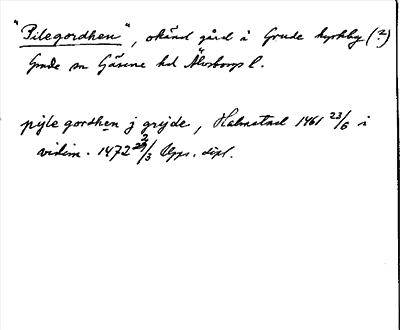 "Pilegordhen", okänd gård i Grude kyrkby (?)
Grude sn Gäsene hd Älvsborgs l.
pijle gordhen j gryde, Halmstad 1461 23/6 i
vidim. 1472 2/3 Upps. dipl.